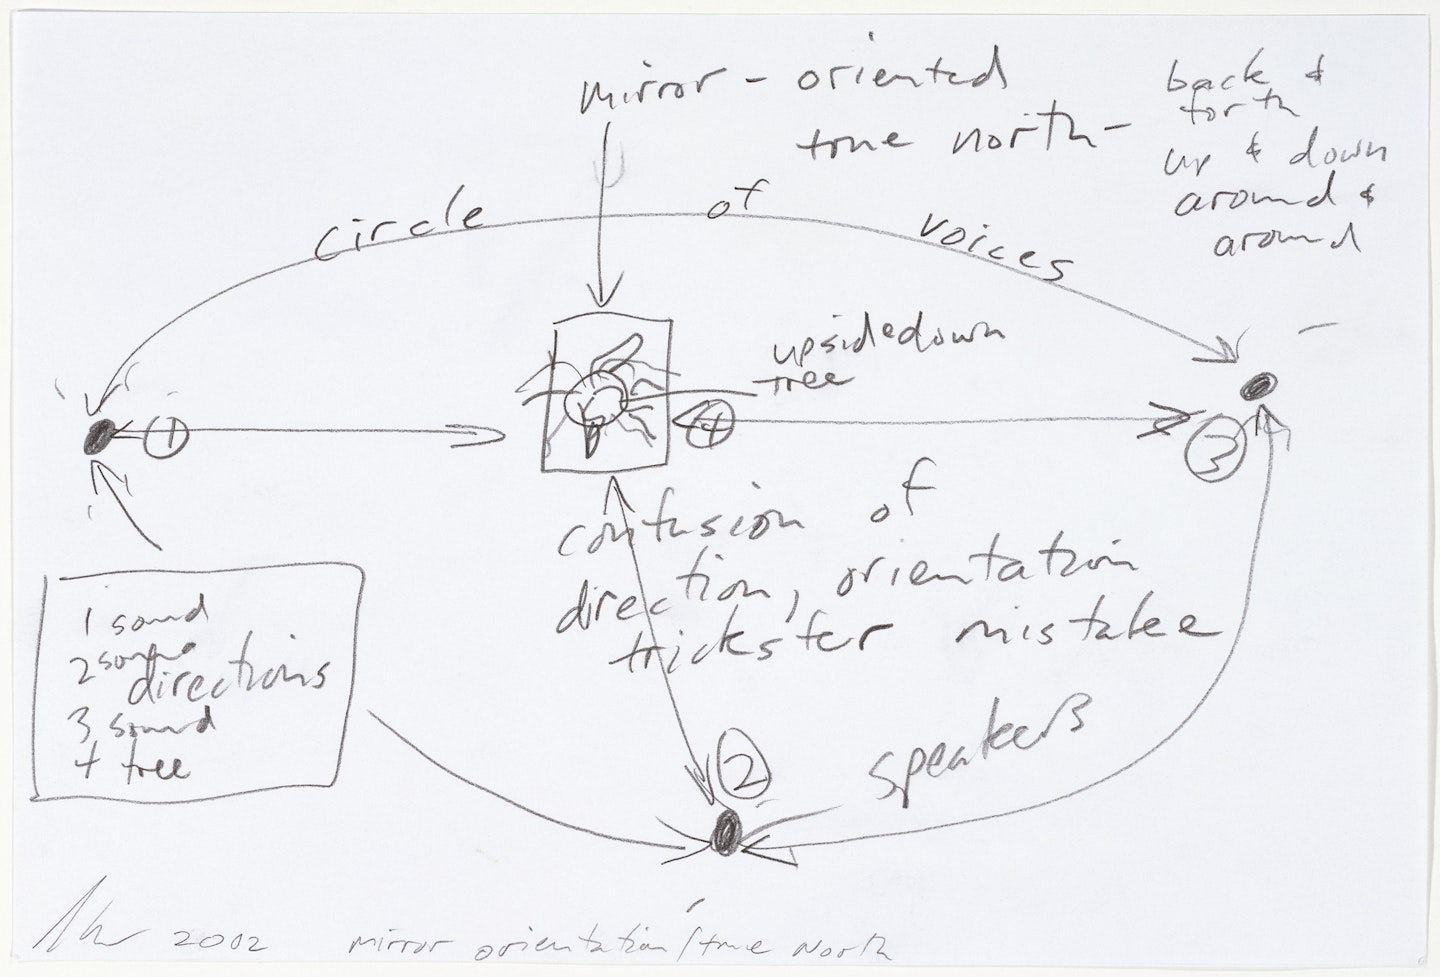 mirror - oriented
true north -
back &
forth
up & down
around &
around
circle of voices
upsidedown
tree
1
4
3
confusion of
direction, orientation
trickster mistake
1 sound
2 sound
directions
3 sound
4 tree
2
speakers
2002 mirror orientation/true North